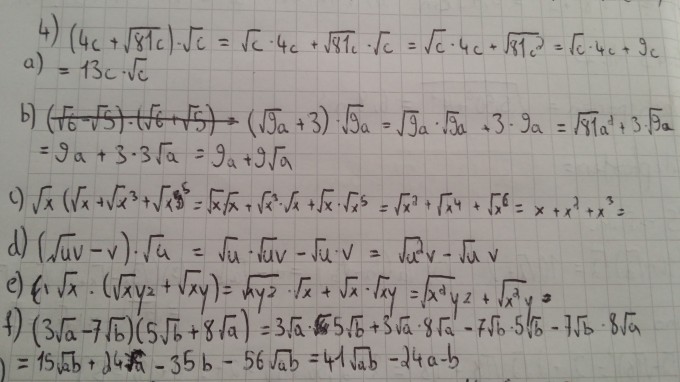 4) (4c + √81c) · √c = √c · 4c + √81c · √c = √c · 4c + √81c² = √c · 4c + 9c
a) = 13c · √c
b) (√6 - √5) · (√6 + √5) = (√9a + 3) · √9a = √9a · √9a + 3 · 9a = √81a² + 3 · √9a
= 9a + 3 · 3√a = 9a + 9√a
c) √x (√x + √x³ + √x⁵ = √x√x + √x³ · √x + √x · √x⁵ = √x² + √x⁴ + √x⁶ = x + x² + x³ =
d) (√uv - v) · √u = √u · √uv - √u · v = √u²v - √u v
e) √x · (√xyz + √xy) = √xyz · √x + √x · √xy = √x²yz + √x²y =
f) (3√a - 7√b)(5√b + 8√a) = 3√a · 5√b + 3√a · 8√a - 7√b · 5√b - 7√b · 8√a
) = 15√ab + 24a - 35b - 56√ab = 41√ab - 24a - b